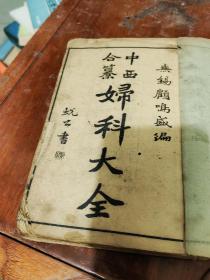 無錫顧鳴盛編
中西合纂
婦科大全
蛻公書